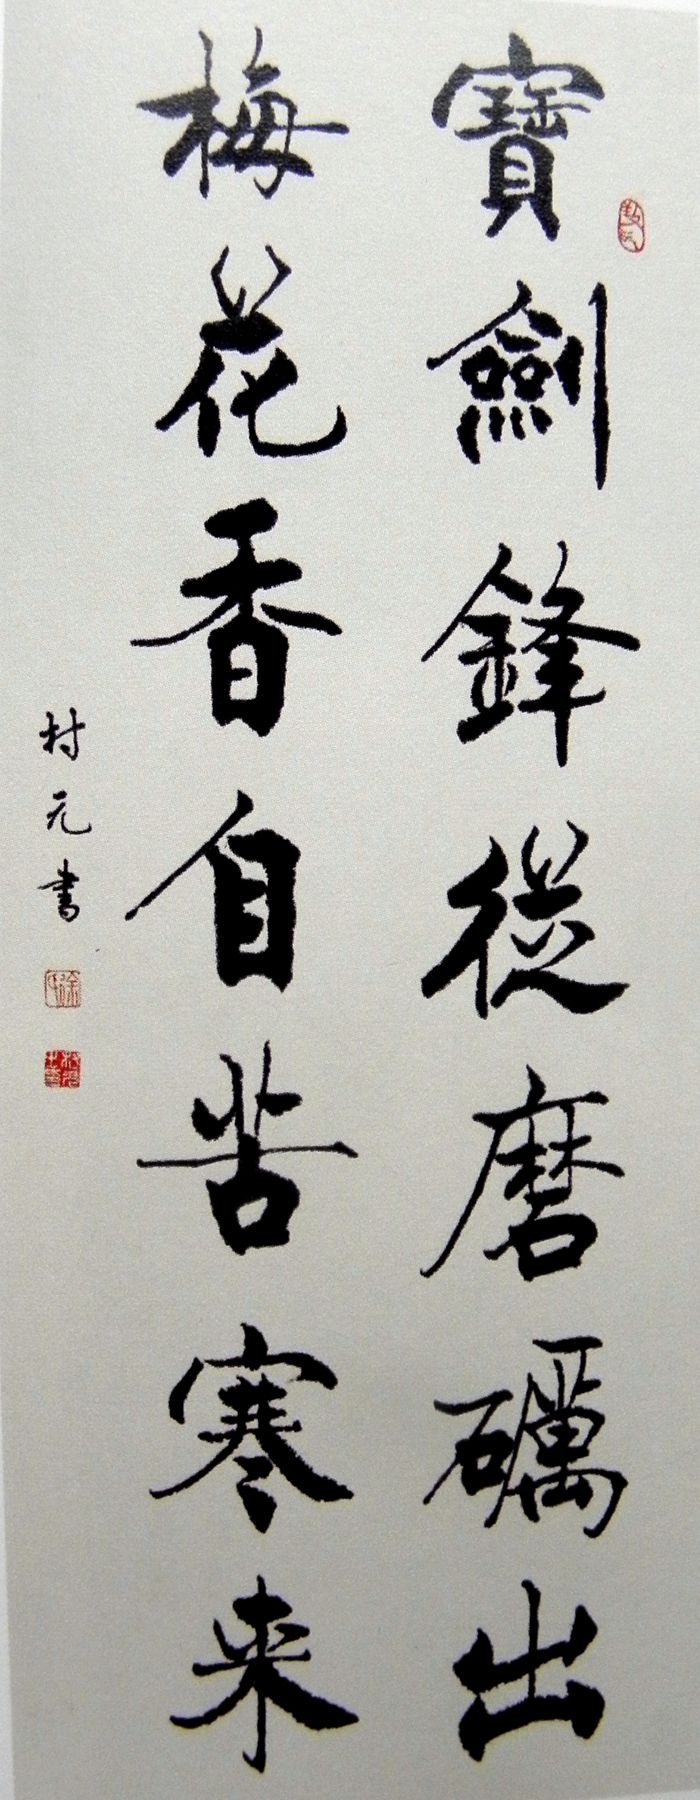 寶劍鋒從磨礪出
梅花香自苦寒来
村元書